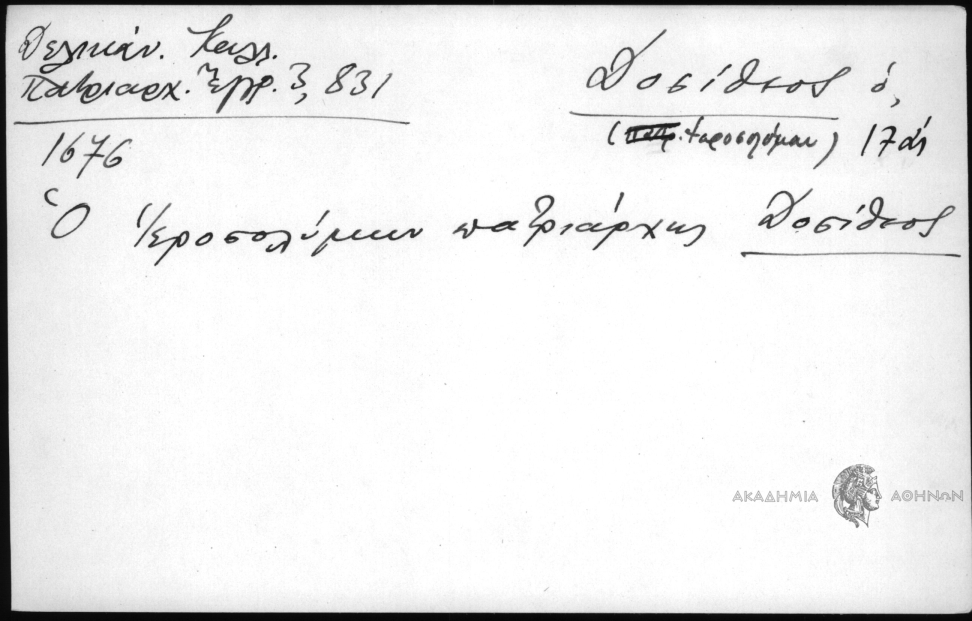 Δελικάν. Καλλ.
Πατριαρχ. Ἔγγρ. 3, 831
Δοσίθεος ὁ,
(Ἱεροσολύμων) 17 αἰ
1676
Ὁ Ἱεροσολύμων πατριάρχης Δοσίθεος
ΑΚΑΔΗΜΙΑ ΑΘΗΝΩΝ